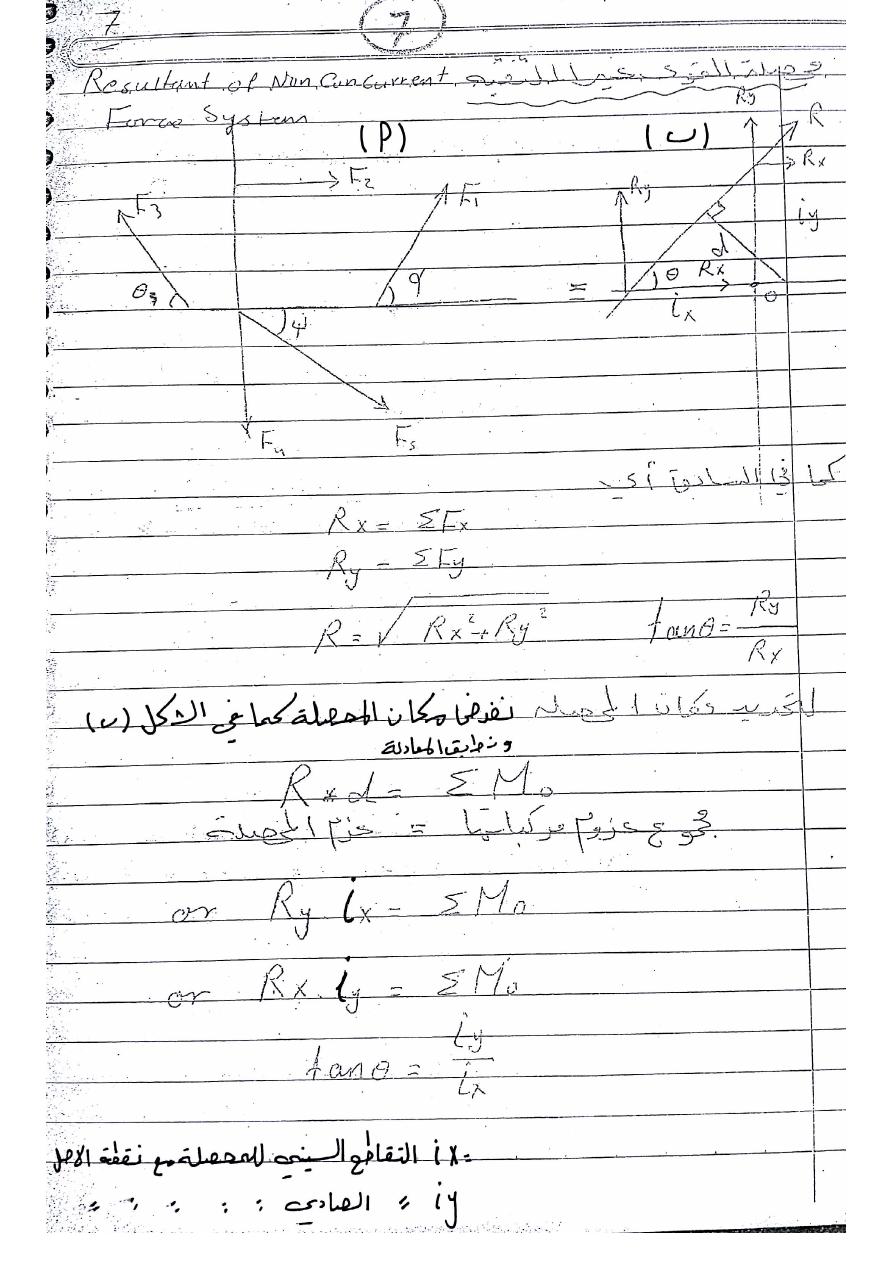 7
7
Resultant of Non Concurrent محصلة القوى غير المتلاقيه
Force System
(أ) (ب)
F3
F2
F1
θ3
φ
ψ
F4
F5
=
Ry
R
Rx
iy
Ry
d
θ Rx
ix
o
كما في السابق أي
Rx = ΣFx
Ry = ΣFy
R = √Rx² + Ry² tanθ = Ry/Rx
لتحديد مكان المحصله نفرض مكان المحصلة كما في الشكل (ب)
ونطبق المعادلة
R × d = ΣMo
مجموع عزوم مركباتها = عزم المحصلة
or Ry ix = ΣMo
or Rx . iy = ΣMo
tanθ = iy/ix
ix = التقاطع السيني للمحصلة مع نقطة الاصل
iy = " الصادي " " " "